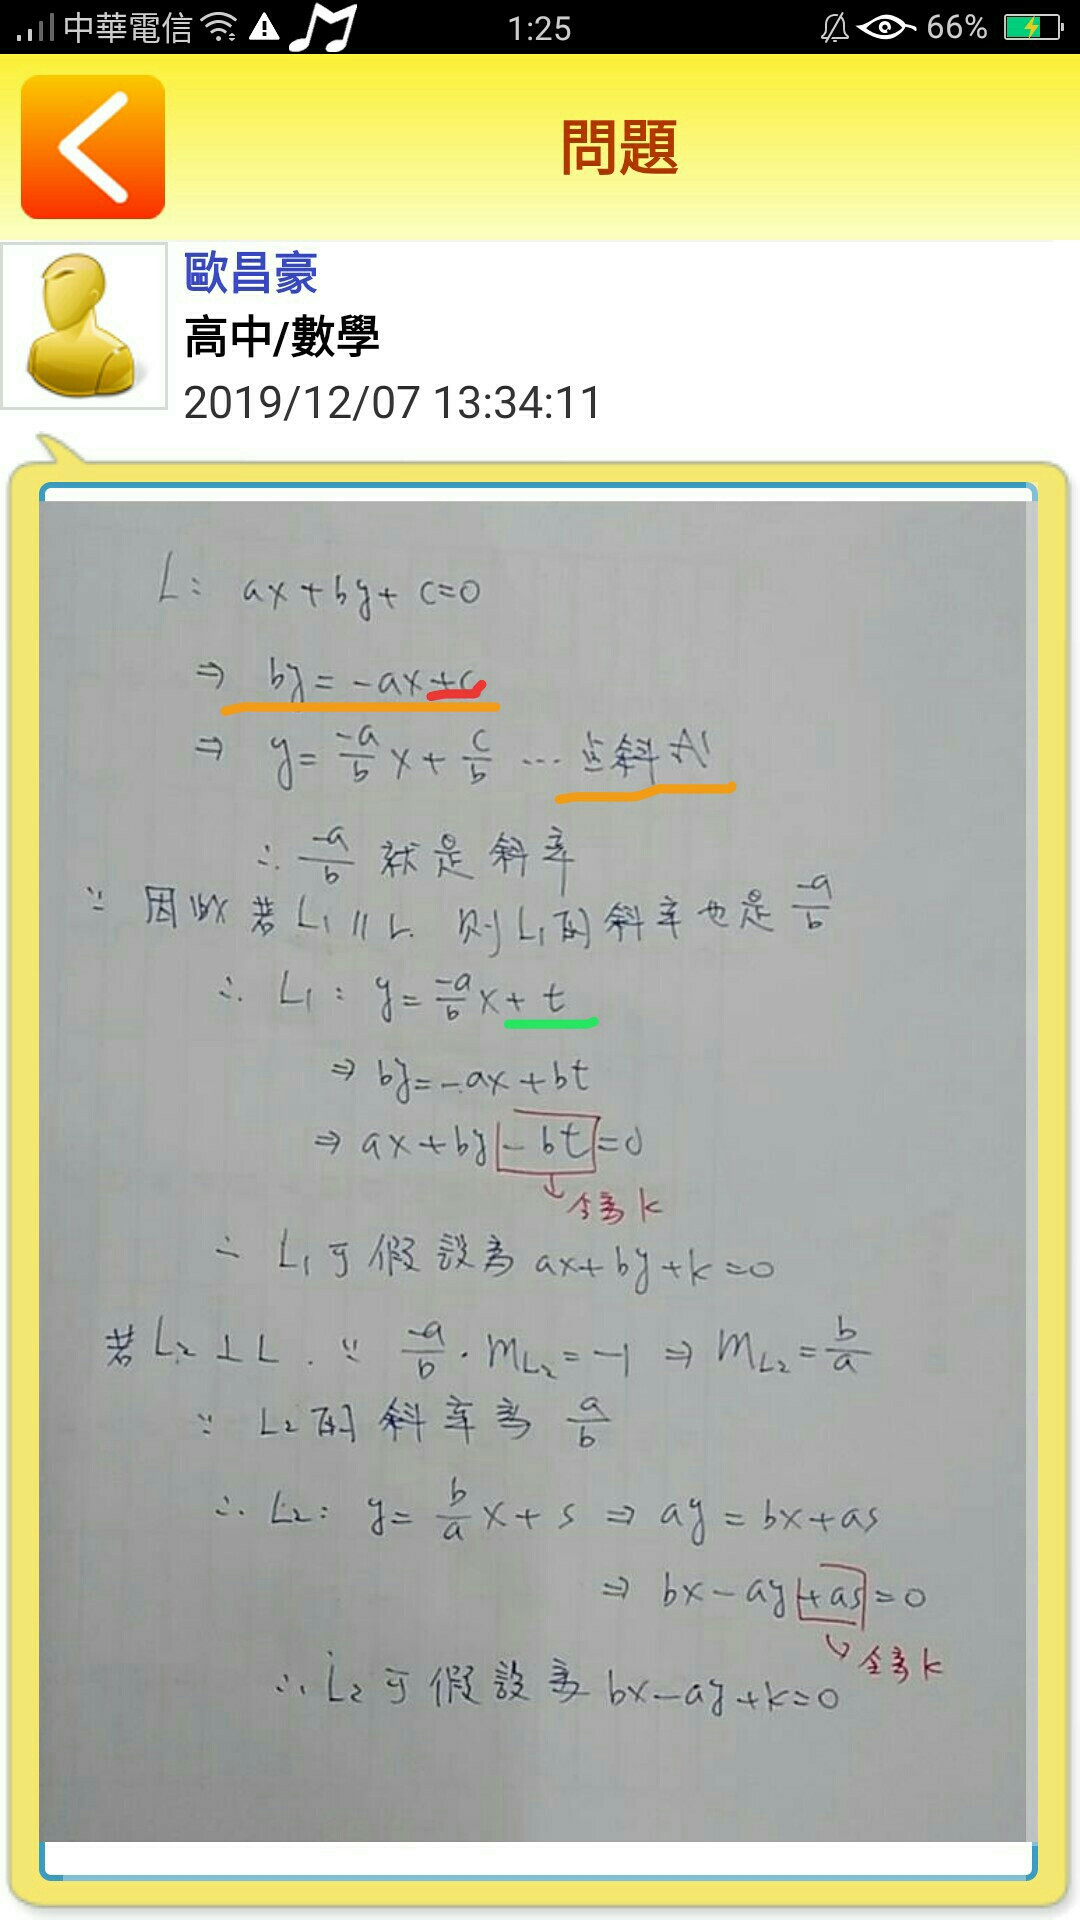 中華電信 1:25 66%
問題
歐昌豪
高中/數學
2019/12/07 13:34:11
L: ax+by+c=0
⇒ by=-ax+c
⇒ y=-a/b x+c/b ... 點斜式
∴ -a/b 就是斜率
∵ 因此若L₁//L. 則L₁的斜率也是 -a/b
∴ L₁: y=-a/b x+t
⇒ by=-ax+bt
⇒ ax+by-bt=0
↓令為k
∴ L₁可假設為 ax+by+k=0
若L₂⊥L. ∵ -a/b · m_L₂=-1 ⇒ m_L₂=b/a
∵ L₂的斜率為 a/b
∴ L₂: y=b/a x+s ⇒ ay=bx+as
⇒ bx-ay+as=0
↘令為k
∴ L₂可假設為 bx-ay+k=0